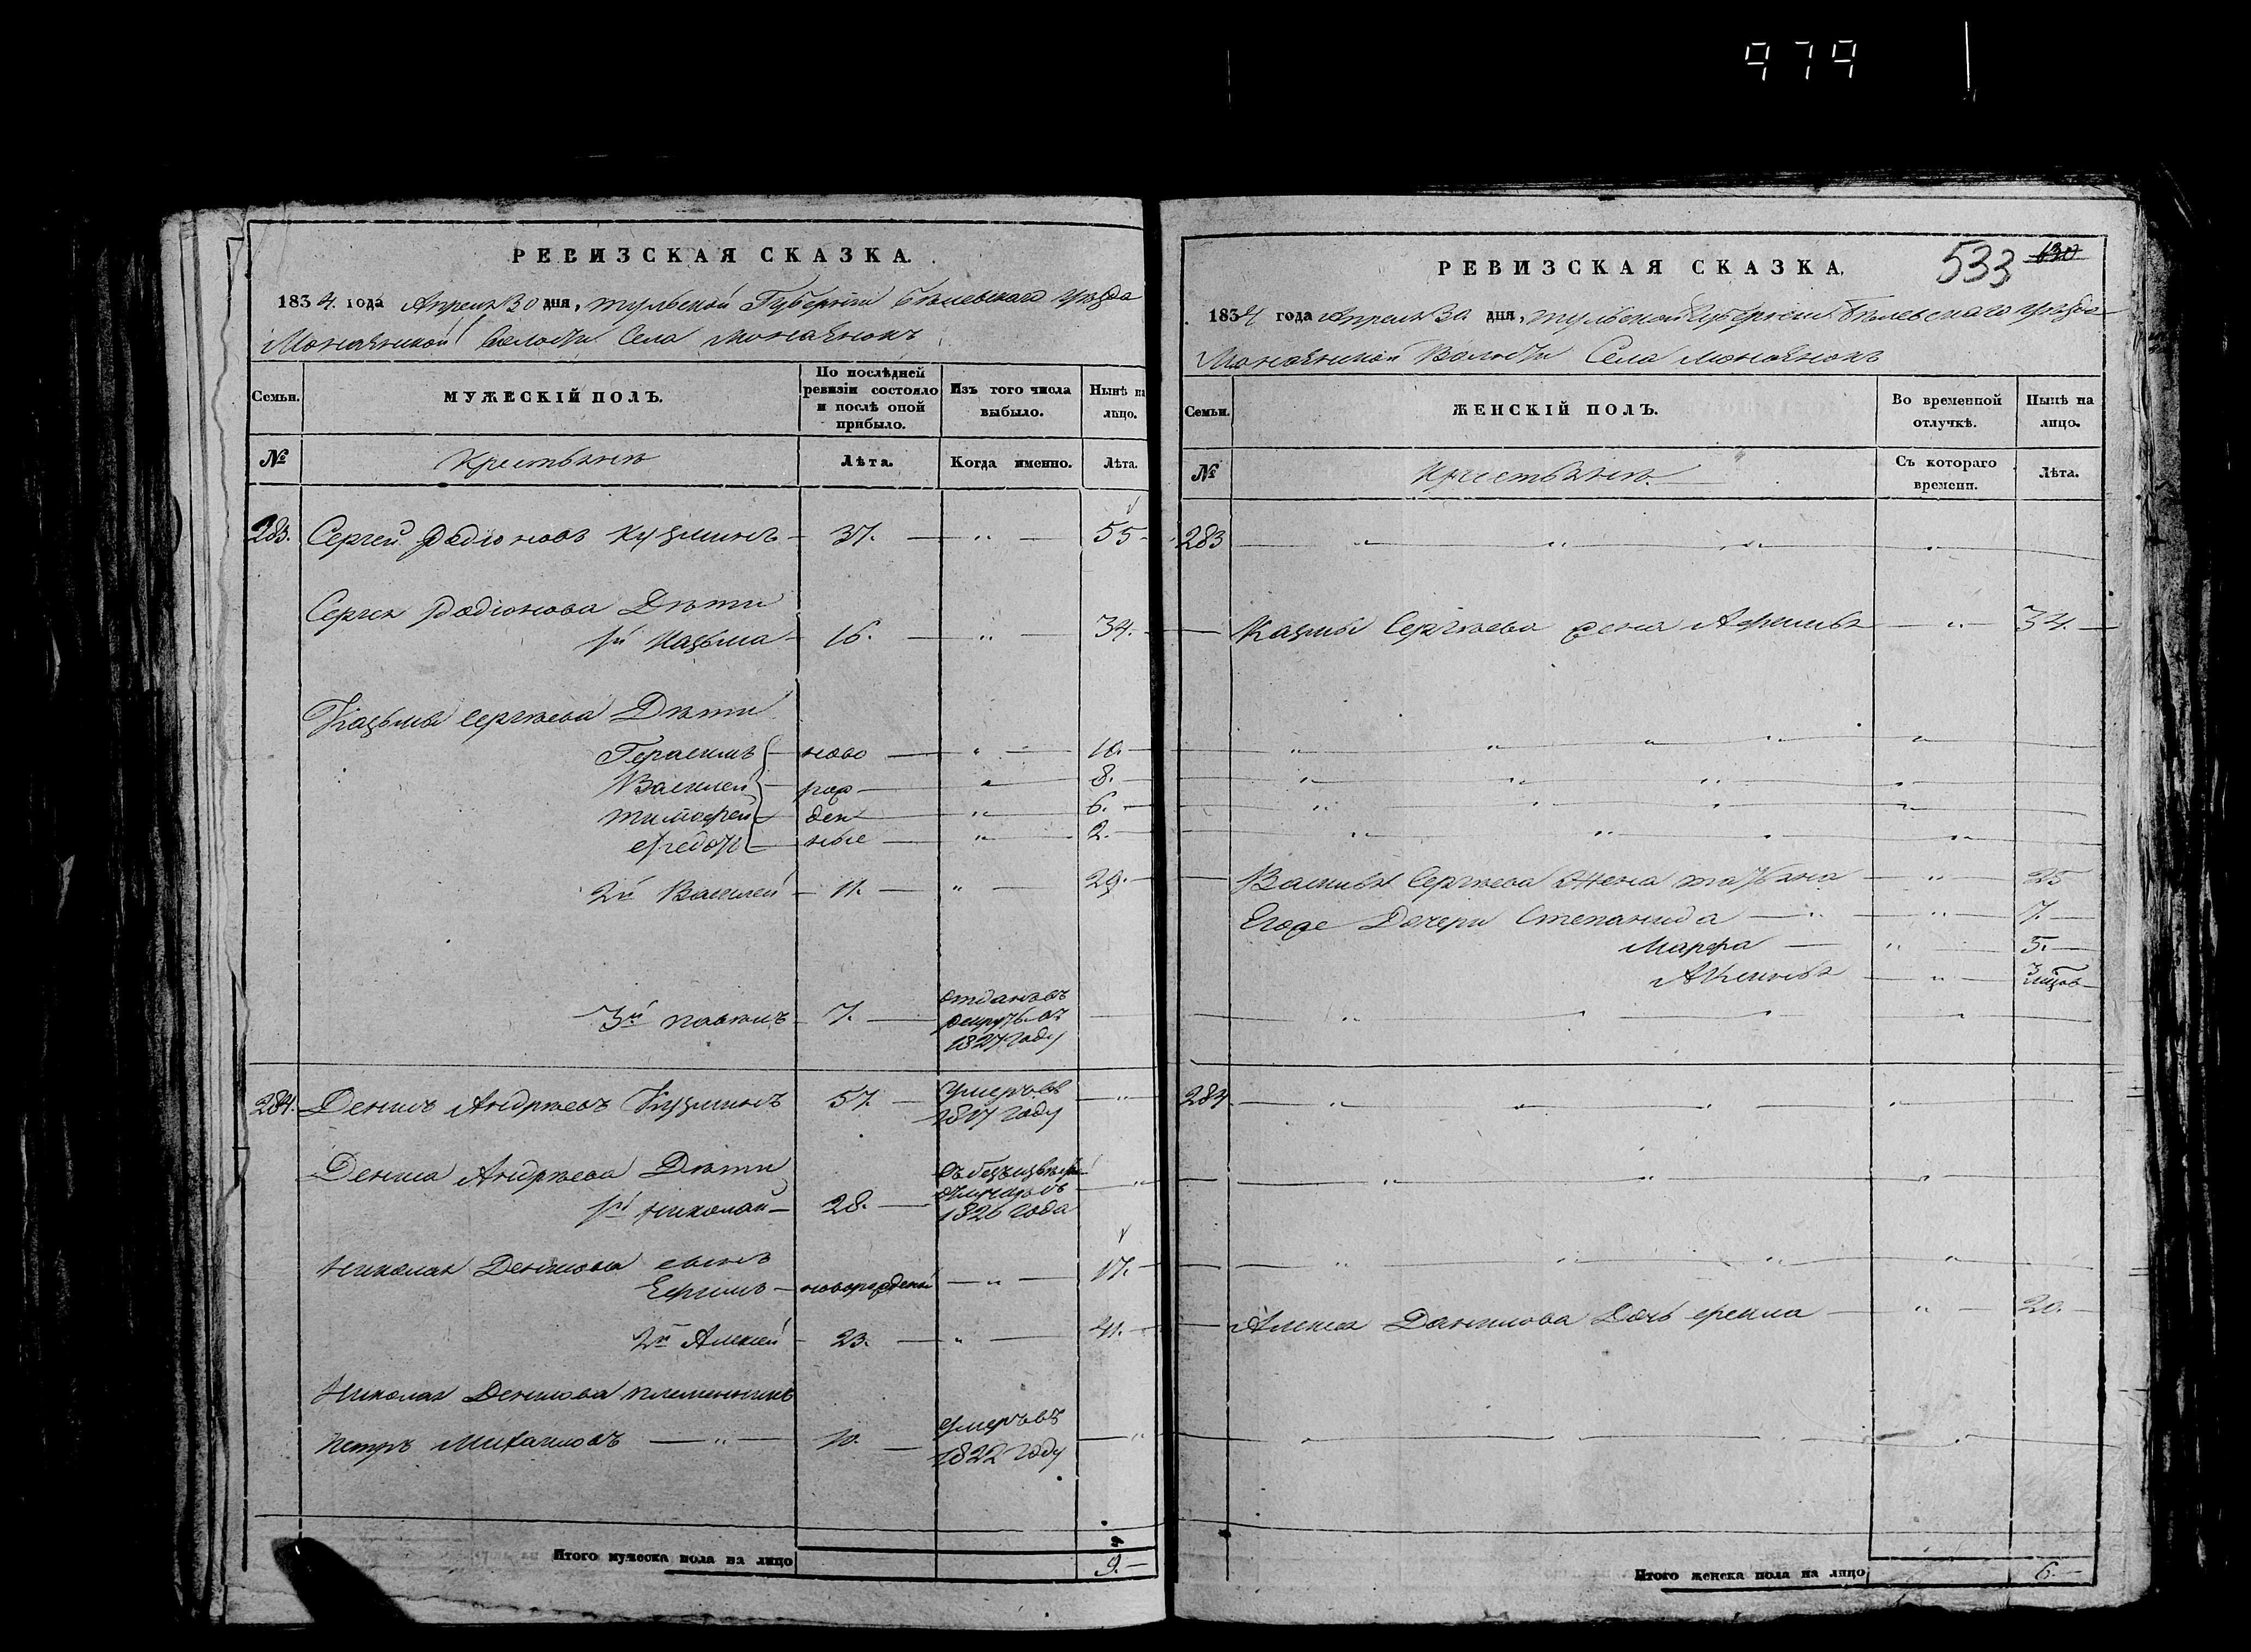 979
РЕВИЗСКАЯ СКАЗКА.
1834. года Апреля 30 дня, Тульской Губернiи Белевскаго уезда
Волости Села
Семьи.
МУЖЕСКІЙ ПОЛЪ.
По послѣдней ревизіи состояло и послѣ оной прибыло.
Изъ того числа выбыло.
Нынѣ на лицо.
№
Крестьяне
Лѣта.
Когда именно.
Лѣта.
283. Сергей Родiоновъ Кузминъ 37. 55
Сергея Родiонова Дѣти
1й Казьма 16. 34.
Казьмы Сергѣева Дѣти
Герасимъ ново 10.
Василей рож 8.
Тимофей ден 6.
Федоръ ные 2.
2й Василей 11. 29.
3й 7. отданъ въ рекруты въ 1827 году
284. Денисъ Андрѣевъ Кузминъ 57. умеръ въ 1817 году
Дениса Андрѣева Дѣти
1й Николай 28. 1826 года
Николая Денисова сынъ
Ефимъ новорожденой 17.
2й Алексей 23. 41.
Николая Денисова племянникъ
Петръ Михайловъ 10. умеръ въ 1822 году
Итого мужеска пола на лицо 9.
РЕВИЗСКАЯ СКАЗКА.
533 130
1834 года Апреля 30 дня, Тульской Губернiи Белевскаго уезда
Волости Села
Семьи.
ЖЕНСКІЙ ПОЛЪ.
Во временной отлучкѣ.
Нынѣ на лицо.
№
Крестьяне.
Съ котораго времени.
Лѣта.
283
Казмы Сергѣева жена Афимья 34.
Василья Сергѣева жена Татьяна 25
Егоже Дочери Степанида 7.
Марфа 5.
Аксинья
284
Алексея Данилова Дочь Фекла 20.
Итого женска пола на лицо 6.